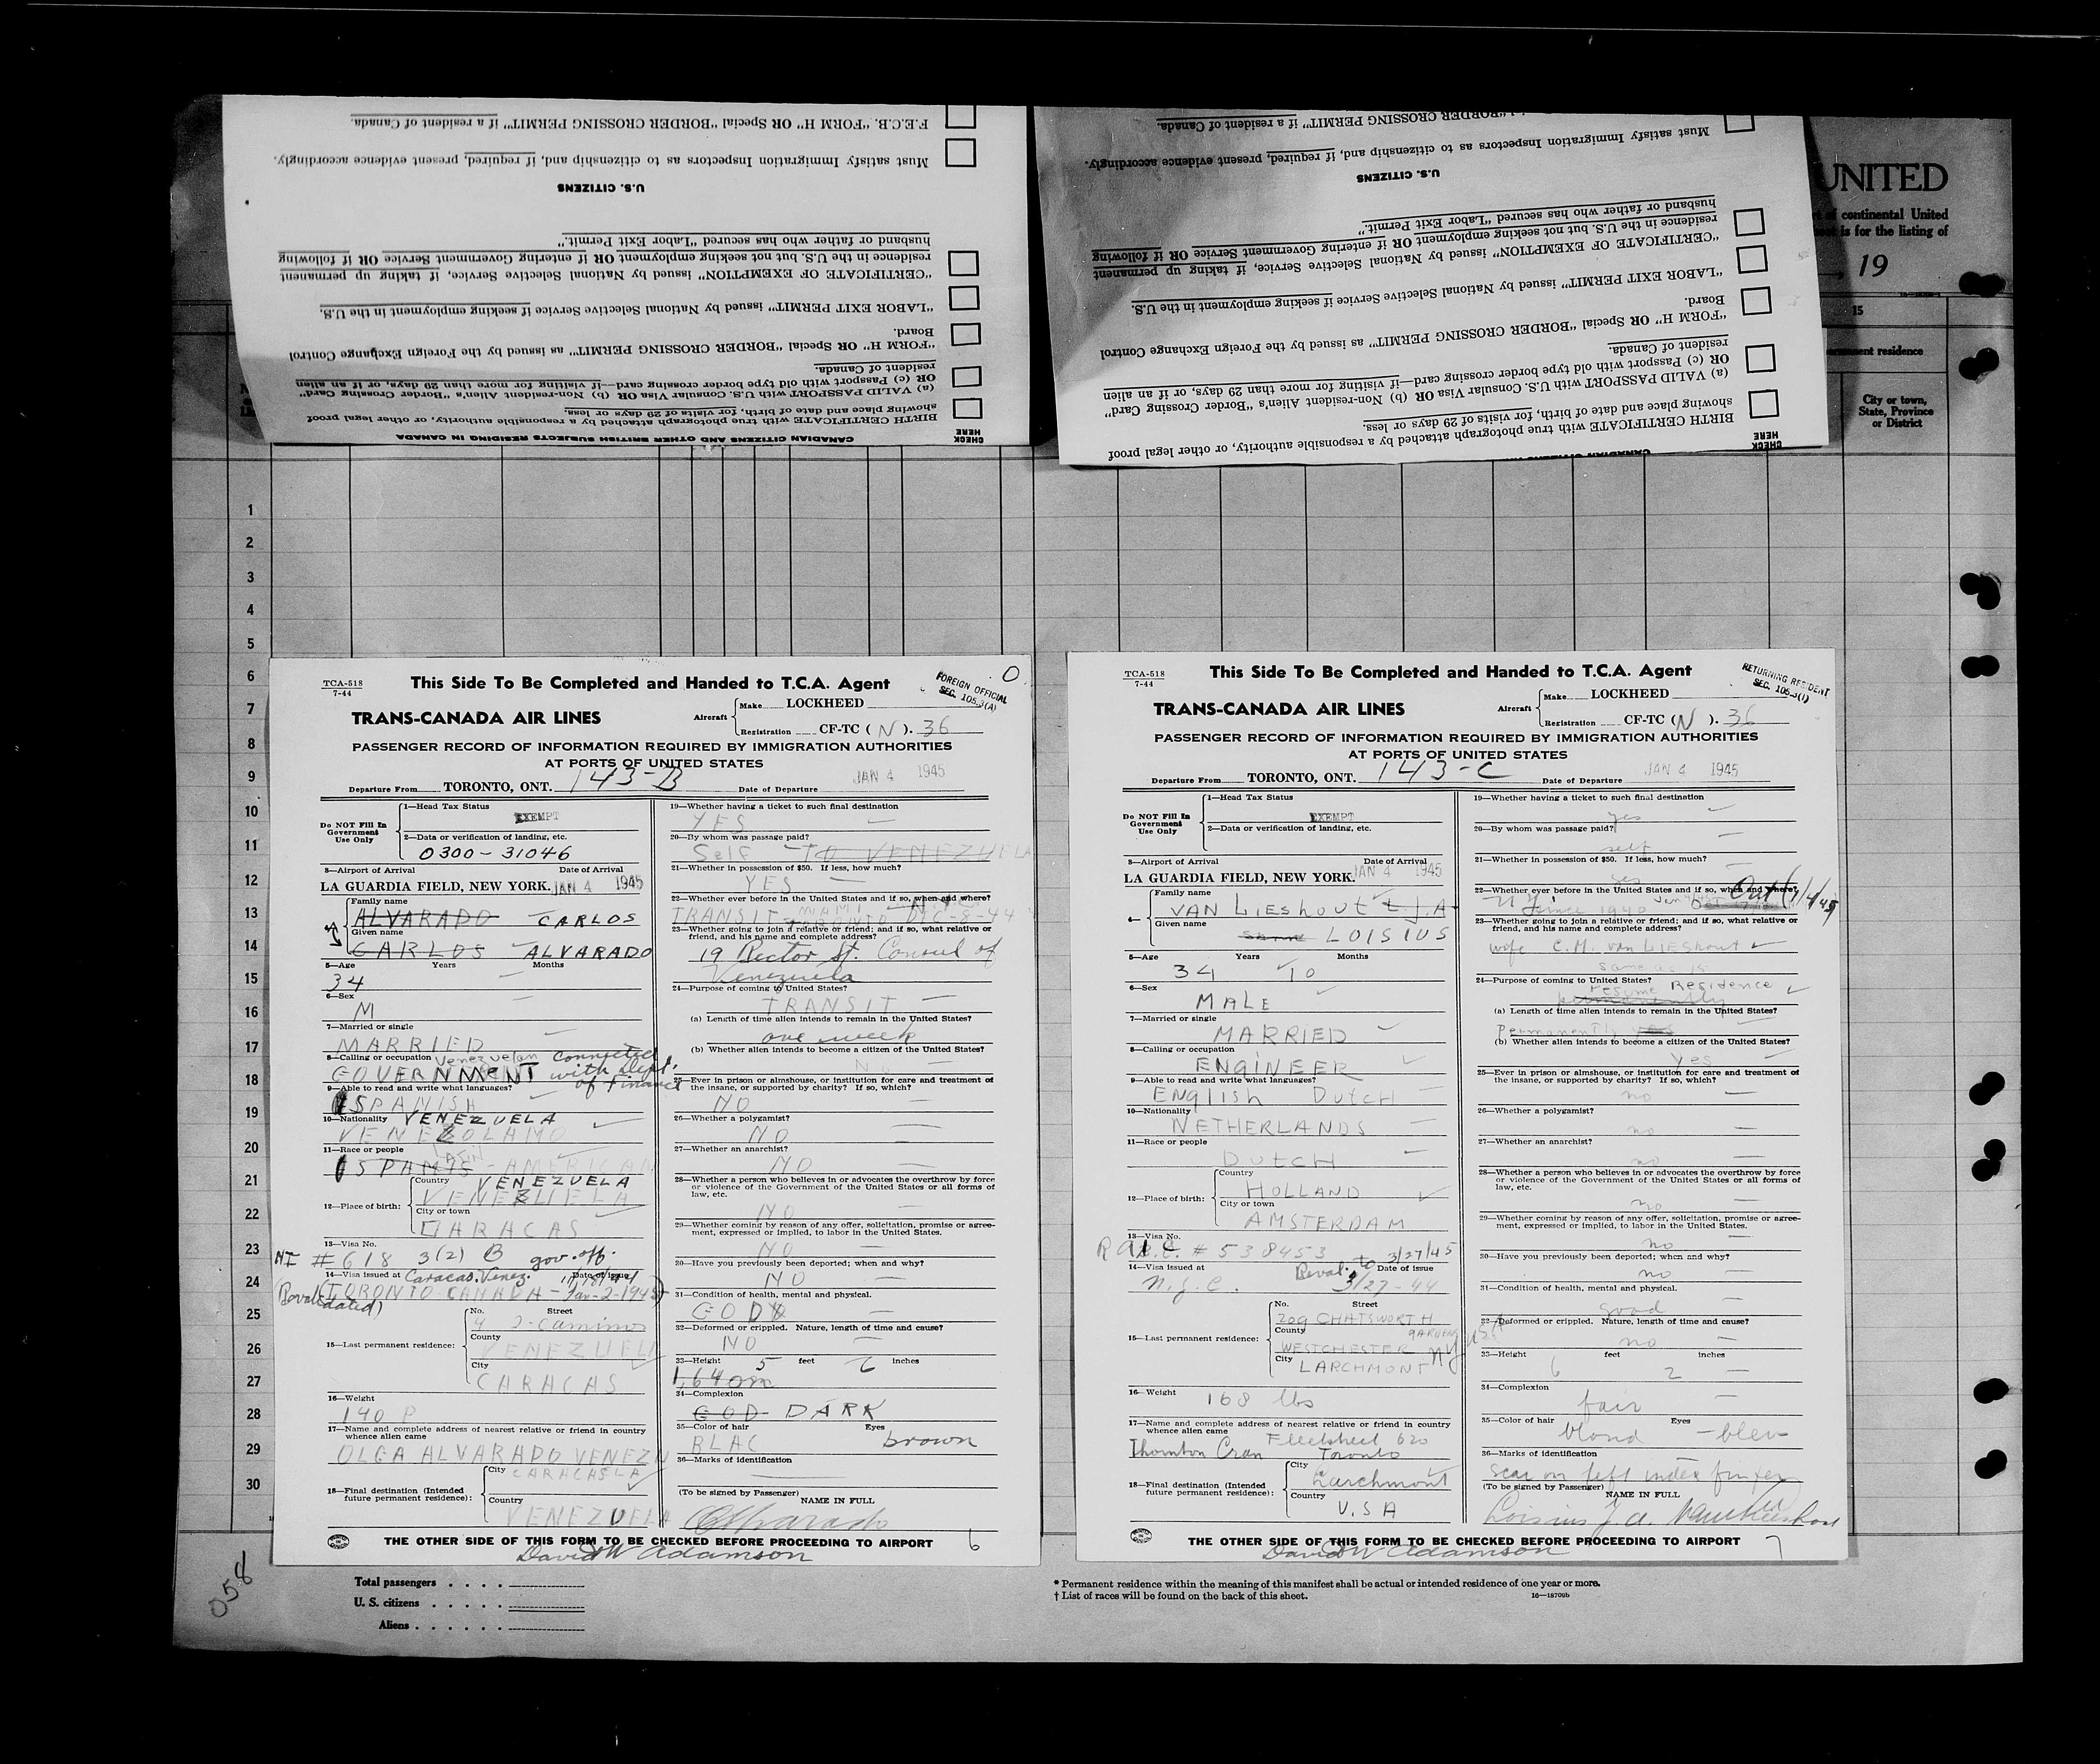 F.E.C.B. "FORM H" OR Special "BORDER CROSSING PERMIT" if a resident of Canada.
Must satisfy Immigration Inspectors as to citizenship and, if required, present evidence accordingly.
U.S. CITIZENS
husband or father who has secured "Labor Exit Permit."
residence in the U.S. but not seeking employment OR if entering Government Service OR if following
"CERTIFICATE OF EXEMPTION" issued by National Selective Service, if taking up permanent
"LABOR EXIT PERMIT" issued by National Selective Service if seeking employment in the U.S.
Board.
"FORM H" OR Special "BORDER CROSSING PERMIT" as issued by the Foreign Exchange Control
resident of Canada.
OR (c) Passport with old type border crossing card—if visiting for more than 29 days, or if an alien
(a) VALID PASSPORT with U.S. Consular Visa OR (b) Non-resident Alien's "Border Crossing Card"
showing place and date of birth, for visits of 29 days or less.
BIRTH CERTIFICATE with true photograph attached by a responsible authority, or other legal proof
CANADIAN CITIZENS AND OTHER BRITISH SUBJECTS RESIDING IN CANADA
CHECK HERE
"BORDER CROSSING PERMIT" if a resident of Canada.
Must satisfy Immigration Inspectors as to citizenship and, if required, present evidence accordingly.
U.S. CITIZENS
husband or father who has secured "Labor Exit Permit."
residence in the U.S. but not seeking employment OR if entering Government Service OR if following
"CERTIFICATE OF EXEMPTION" issued by National Selective Service, if taking up permanent
"LABOR EXIT PERMIT" issued by National Selective Service if seeking employment in the U.S.
Board.
"FORM H" OR Special "BORDER CROSSING PERMIT" as issued by the Foreign Exchange Control
resident of Canada.
OR (c) Passport with old type border crossing card—if visiting for more than 29 days, or if an alien
(a) VALID PASSPORT with U.S. Consular Visa OR (b) Non-resident Alien's "Border Crossing Card"
showing place and date of birth, for visits of 29 days or less.
BIRTH CERTIFICATE with true photograph attached by a responsible authority, or other legal proof
CHECK HERE
UNITED
of continental United
is for the listing of
, 19
15
permanent residence
City or town,
State, Province
or District
1
2
3
4
5
6
7
8
9
10
11
12
13
14
15
16
17
18
19
20
21
22
23
24
25
26
27
28
29
30
TCA-518
7-44
This Side To Be Completed and Handed to T.C.A. Agent
FOREIGN OFFICIAL
SEC. 105.3(A)
0
TRANS-CANADA AIR LINES
Aircraft
Make LOCKHEED
Registration CF-TC (N). 36
PASSENGER RECORD OF INFORMATION REQUIRED BY IMMIGRATION AUTHORITIES
AT PORTS OF UNITED STATES
Departure From TORONTO, ONT. 143-B Date of Departure JAN 4 1945
Do NOT Fill In
Government
Use Only
1—Head Tax Status
EXEMPT
2—Data or verification of landing, etc.
0300-31046
3—Airport of Arrival Date of Arrival
LA GUARDIA FIELD, NEW YORK. JAN 4 1945
Family name
ALVARADO CARLOS
Given name
CARLOS ALVARADO
5—Age Years Months
34
6—Sex
M
7—Married or single
MARRIED
8—Calling or occupation Venezuelan connected
GOVERNMENT with Dept.
of Finance
9—Able to read and write what languages?
SPANISH
10—Nationality VENEZUELA
VENEZOLANO
11—Race or people LATIN
SPANIS - AMERICAN
12—Place of birth:
Country VENEZUELA
VENEZUELA
City or town
CARACAS
13—Visa No.
NI #618 3(2) B gov. off.
14—Visa issued at Caracas, Venez. Date of issue
TORONTO CANADA - Jan-2-1945
(Revalidated)
15—Last permanent residence:
No. Street
County
VENEZUELA
City
CARACAS
16—Weight
140 P
17—Name and complete address of nearest relative or friend in country
whence alien came
OLGA ALVARADO VENEZU
18—Final destination (Intended
future permanent residence):
City CARACAS LA
Country
VENEZUELA
19—Whether having a ticket to such final destination
YES
20—By whom was passage paid?
Self - TO VENEZUELA
21—Whether in possession of $50. If less, how much?
YES
22—Whether ever before in the United States and if so, when and where?
TRANSIT MIAMI - TORONTO DEC-8-44
23—Whether going to join a relative or friend; and if so, what relative or
friend, and his name and complete address?
19 Rector St. Consul of
Venezuela
24—Purpose of coming to United States?
TRANSIT
(a) Length of time alien intends to remain in the United States?
one week
(b) Whether alien intends to become a citizen of the United States?
No
25—Ever in prison or almshouse, or institution for care and treatment of
the insane, or supported by charity? If so, which?
NO
26—Whether a polygamist?
NO
27—Whether an anarchist?
NO
28—Whether a person who believes in or advocates the overthrow by force
or violence of the Government of the United States or all forms of
law, etc.
NO
29—Whether coming by reason of any offer, solicitation, promise or agree-
ment, expressed or implied, to labor in the United States.
NO
30—Have you previously been deported; when and why?
NO
31—Condition of health, mental and physical.
GOOD
32—Deformed or crippled. Nature, length of time and cause?
NO
33—Height 5 feet 6 inches
34—Complexion
GOD DARK
35—Color of hair Eyes
BLAC brown
36—Marks of identification
(To be signed by Passenger)
NAME IN FULL
CAlvarado
THE OTHER SIDE OF THIS FORM TO BE CHECKED BEFORE PROCEEDING TO AIRPORT
David W Adamson
6
TCA-518
7-44
This Side To Be Completed and Handed to T.C.A. Agent
RETURNING RESIDENT
SEC. 105.3(1)
TRANS-CANADA AIR LINES
Aircraft
Make LOCKHEED
Registration CF-TC (N). 36
PASSENGER RECORD OF INFORMATION REQUIRED BY IMMIGRATION AUTHORITIES
AT PORTS OF UNITED STATES
Departure From TORONTO, ONT. 143-C Date of Departure JAN 4 1945
Do NOT Fill In
Government
Use Only
1—Head Tax Status
EXEMPT
2—Data or verification of landing, etc.
3—Airport of Arrival Date of Arrival
LA GUARDIA FIELD, NEW YORK. JAN 4 1945
4—
Family name
VAN LIEShout L.J.A.
Given name
LOISIUS
5—Age Years Months
34 10
6—Sex
MALE
7—Married or single
MARRIED
8—Calling or occupation
ENGINEER
9—Able to read and write what languages?
English Dutch
10—Nationality
NETHERLANDS
11—Race or people
DUTCH
12—Place of birth:
Country
HOLLAND
City or town
AMSTERDAM
13—Visa No.
#538453 to 3/27/45
14—Visa issued at Reval. Date of issue
N.Y.C. 3/27-44
15—Last permanent residence:
No. Street
209 CHATSWORTH
GARDENS
County
WESTCHESTER NY
City
LARCHMONT
16—Weight
168 lbs
17—Name and complete address of nearest relative or friend in country
whence alien came Fleetstreet 620
Thornton Cran Toronto
18—Final destination (Intended
future permanent residence):
City
Larchmont
Country
U.S.A
19—Whether having a ticket to such final destination
yes
20—By whom was passage paid?
self
21—Whether in possession of $50. If less, how much?
yes
22—Whether ever before in the United States and if so, when and where?
N.Y. since 1940 Out 1/1/45
23—Whether going to join a relative or friend; and if so, what relative or
friend, and his name and complete address?
wife C.M. van LIEShout
same as 15
24—Purpose of coming to United States?
resume Residence
permanently
(a) Length of time alien intends to remain in the United States?
Permanently yes
(b) Whether alien intends to become a citizen of the United States?
yes
25—Ever in prison or almshouse, or institution for care and treatment of
the insane, or supported by charity? If so, which?
no
26—Whether a polygamist?
no
27—Whether an anarchist?
no
28—Whether a person who believes in or advocates the overthrow by force
or violence of the Government of the United States or all forms of
law, etc.
no
29—Whether coming by reason of any offer, solicitation, promise or agree-
ment, expressed or implied, to labor in the United States.
no
30—Have you previously been deported; when and why?
no
31—Condition of health, mental and physical.
good
32—Deformed or crippled. Nature, length of time and cause?
no
33—Height feet inches
6 2
34—Complexion
fair
35—Color of hair Eyes
blond - bleu
36—Marks of identification
scar on left index finger
(To be signed by Passenger)
NAME IN FULL
Loisius J. A. van Lieshout
THE OTHER SIDE OF THIS FORM TO BE CHECKED BEFORE PROCEEDING TO AIRPORT
David W Adamson
7
058
Total passengers
U. S. citizens
Aliens
* Permanent residence within the meaning of this manifest shall be actual or intended residence of one year or more.
† List of races will be found on the back of this sheet.
16—18709b